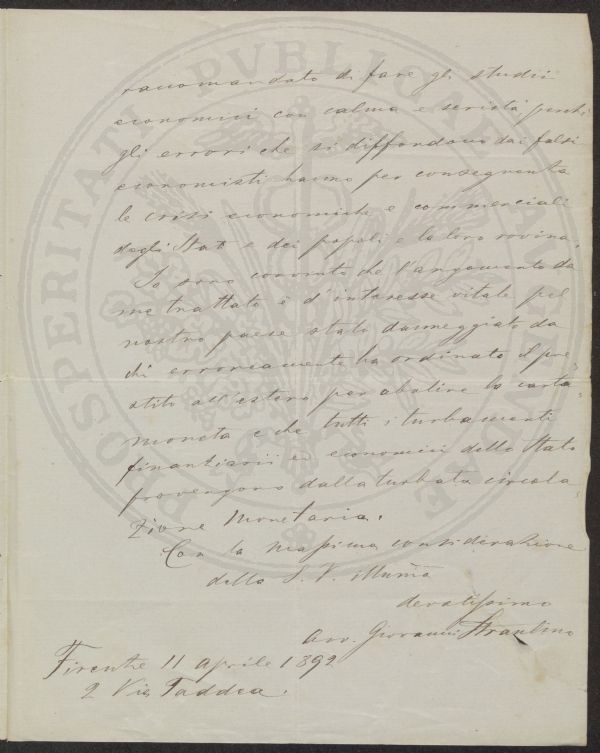 raccomandato di fare gli studii
economici con calma e serietà, perchè
gli errori che si diffondono dai falsi
economisti hanno per conseguenza
le crisi economiche e commerciali
degli Stati e dei popoli e la loro rovina.
Io sono convinto che l'argomento da
me trattato è d'interesse vitale pel
nostro paese stato danneggiato da
chi erroneamente ha ordinato il pre
stito all'estero per abolire la carta
moneta e che tutti i turbamenti
finanziarii ed economici dello Stato
provengono dalla turbata circola
zione monetaria.
Con la massima considerazione
della S. V. illuma
devotissimo
Avv. Giovanni
Firenze 11 Aprile 1892
2 Via Taddea.
PROSPERITATI PVBLICAE AVGENDAE